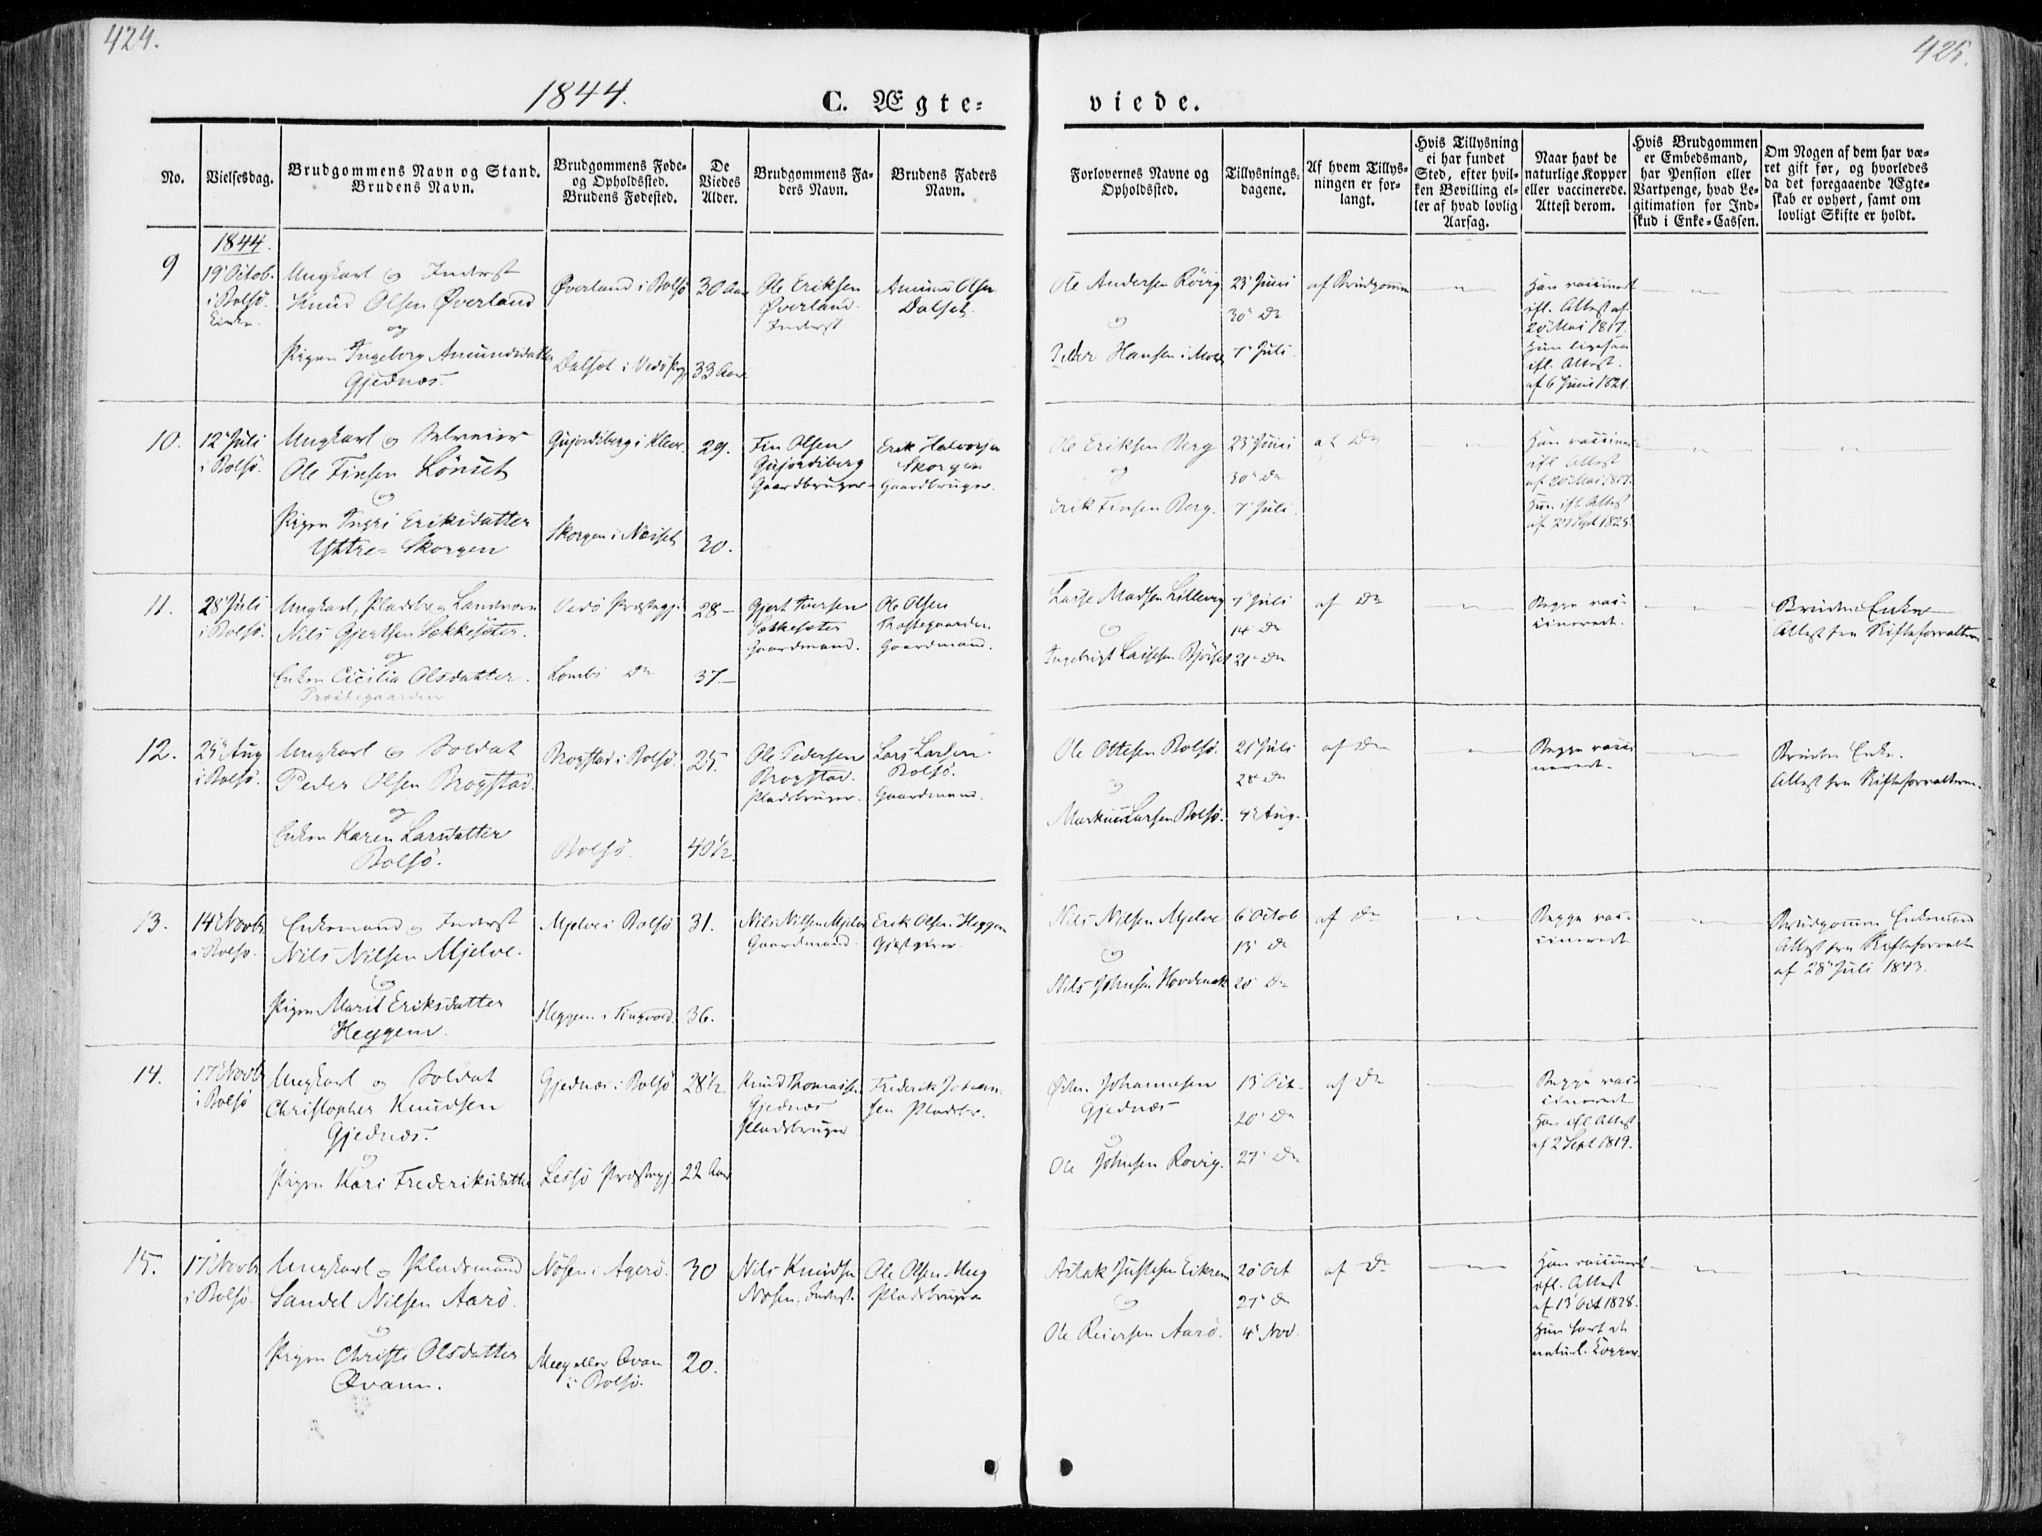 424.
425.
1844.
C. Ægte-
viede.
No.
Vielsesdag.
Brudgommens Navn og Stand.
Brudens Navn.
Brudgommens Føde-
og Opholdssted.
Brudens Fødested.
De
Viedes
Alder.
Brudgommens Fa-
ders Navn.
Brudens Faders
Navn.
Forlovernes Navne og
Opholdssted.
Tillysnings-
dagene.
Af hvem Tillys-
ningen er for-
langt.
Hvis Tillysning
ei har fundet
Sted, efter hvil-
ken Bevilling el-
ler af hvad lovlig
Aarsag.
Naar havt de
naturlige Kopper
eller vaccinerede.
Attest derom.
Hvis Brudgommen
er Embedsmand,
har Pension eller
Vartpenge, hvad Le-
gitimation for Ind-
skud i Enke-Cassen.
Om Nogen af dem har væ-
ret gift før, og hvorledes
da det foregaaende Ægte-
skab er ophørt, samt om
lovligt Skifte er holdt.
1844.
9
19 Octob.
i Bolsø
Kirke.
Ungkarl og Inderst
Knud Olsen Øverland
og
Pigen Ingeborg Amundsdatter
Gjednæs.
Øverland i Bolsø
Dalset i Vedø Prgj
30 Aar
33 Aar
Ole Eriksen
Øverland
Inderst
Amund Olsen
Dalset.
Ole Andersen Rövig
og
Peder Hansen i Molde
23 Juni
30 Do
7 Juli.
af Brudgommen
Han vaccineret
ifl. Attest af
20 Mai 1817.
Hun ligesaa
ifl. Attest
af 6 Juni 1821.
10.
12 Juli
i Bolsø.
Ungkarl og Selveier
Ole Finsen Lönset
og
Pigen Ingri Eriksdatter
Yttre-Skorgen
Gujordsberg i Kleve.
Skorgen i Næsset
29.
30.
Fin Olsen
Gujordsberg
Gaardbruger
Erik Halvorsen
Skorgen
Gaardbruger.
Ole Eriksen Berg
og
Erik Finsen Berg.
23 Juni
30 Do
7 Juli.
af Do
Han vaccineret
ifl. Attest
af 20 Mai 1817.
Hun ifl. Attest
af 27 Sept 1825
11.
28 Juli
i Bolsø.
Ungkarl, Pladsbr. og Landværn
Nils Gjertsen Sækkesæter.
og
Enken Cicilia Olsdatter.
Præstegaarden
Vedø Præstegj.
Lombs Do
28
37
Gjert Iversen
Sækkesæter
Gaardmand.
Ole Olsen
Præstegaarden
Gaardmand.
Lasse Madsen Lillevig
og
Ingebrigt Lassesen Bjørset
7 Juli
14 Do
21 Do
af Do
Begge vac-
cinerede.
Bruden Enke
Attest fra Skifteforvalteren
12.
25 Aug
i Bolsø.
Ungkarl og Soldat
Peder Olsen Brogstad.
og
Enken Karen Larsdatter
Bolsø.
Brogstad i Bolsø.
Bolsø.
25.
40½.
Ole Pedersen
Brogstad.
Pladsbruger.
Lars Larsen
Bolsø.
Gaardmand.
Ole Ottesen Bolsø.
og
Markus Larsen Bolsø.
21 Juli
28 Do
4 Aug.
af Do
Begge vacci
nerede.
Bruden Enke.
Attest fra Skifteforvalteren.
13.
14 Novbr
i Bolsø.
Enkemand og Inderst
Nils Nilsen Mjelve.
og
Pigen Marit Eriksdatter
Heggem.
Mjelve i Bolsø
Heggem i Tingvold.
31.
36.
Nils Nilsen Mjelve
Gaardmand.
Erik Olsen Heggem
Gjæstgiver.
Nils Nilsen Mjelve
og
Nils Johnsen Hovdenak
6 Octob
13 Do
20 Do
af Do
Begge vac-
cinerede
Brudgommen Enkemand
Attest fra Skifteforvalteren
af 28 Juli 1843.
14.
17 Novbr
i Bolsø
Ungkarl og Soldat
Christopher Knudsen
Gjednæs.
og
Pigen Kari Frederiksdatter
Gjednæs i Bolsø
Lessø Præstegj.
28½.
22 Aar
Knud Thomassen
Gjednæs
Pladsbruger
Frederik Johan-
sen Pladsbr.
Østen Johannesen
Gjednæs
og
Ole Johnsen Rovig.
13 Oct.
20 Do
27 Do
af Do
Begge vac-
cinerede
Han ifl Attest
af 2 Sept 1819.
15.
17 Novbr
i Bolsø.
Ungkarl og Pladsmand
Sandel Nilsen Aarø.
og
Pigen Christi Olsdatter
Øvann.
Nøsen i Agerø.
Meeg eller Øvan
i Bolsø.
30
20.
Nils Knudsen
Nøsen, Inderst.
Ole Olsen Meeg
Pladsbruger
Aslak Justesen Eikrem
og
Ole Reiersen Aarø.
20 Oct
27 Do
4 Nov.
af Do
Han vaccineret
ifl. Attest
af 13 Oct 1828.
Hun havt de
naturl. Kopper